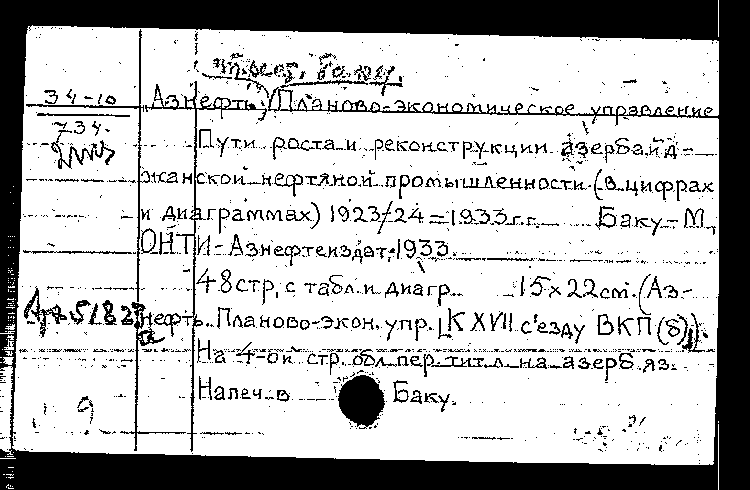 34-10
734.
„Азнефть“, Планово-экономическое управление
Пути роста и реконструкции азербайд-
жанской нефтяной промышленности (в цифрах
и диаграммах) 1923/24 = 1933 г.г. Баку-М,
ОНТИ-Азнефтеиздат, 1933.
48 стр, с табл. и диагр. 15×22 см. (Аз-
нефть. Планово-экон. упр. К XVII с'езду ВКП(б)).
На 4-ой стр. обл. пер. тит. л. на азерб. яз.
Напеч. в Баку.
51823
9